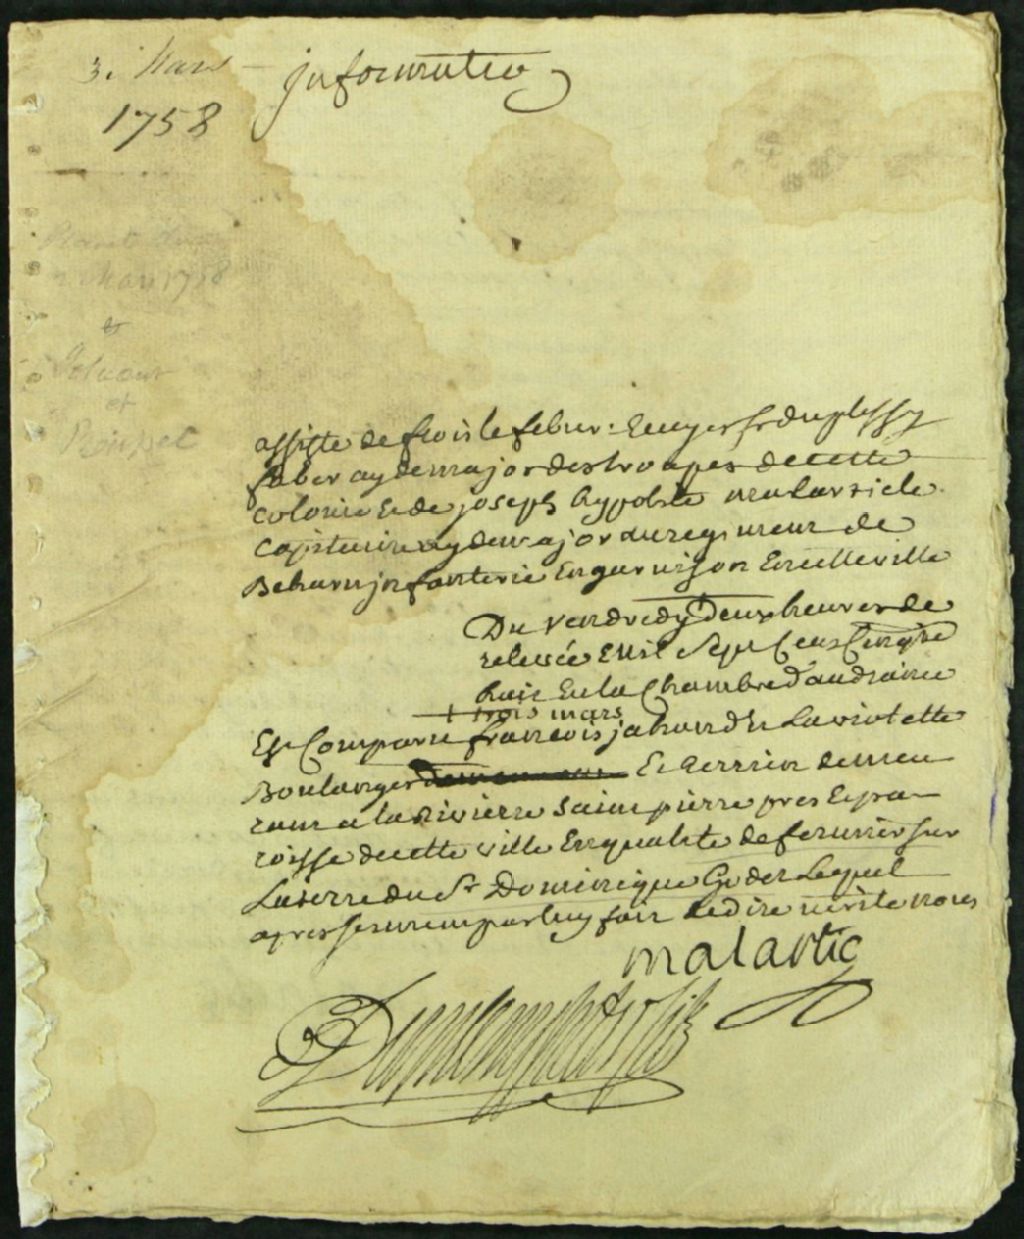 3. Mars
1758
Information
2 Mars 1758
&
et
assiste de frois lefebvre Ecuyer sr duplessy
faber aydemajor des troupes de cette
colonie Et de joseph hypolite
Capitaine aydemajor du regiment de
Bearn jnfanterie En garnison En cette ville
Du vendredy deux heures de
relevée Mil Sept Cens Cinqte
huit En la Chambre d'audiance
+ trois mars
Est Comparu francois jahan dit Laviolette
Boulanger Et demeu
rant a la Riviere Saint pierre pres La pa
roisse de cette ville En qualité de fermier sur
La terre du Sr Dominique Godet Lequel
apres serment par luy fait de dire verité nous
malartic